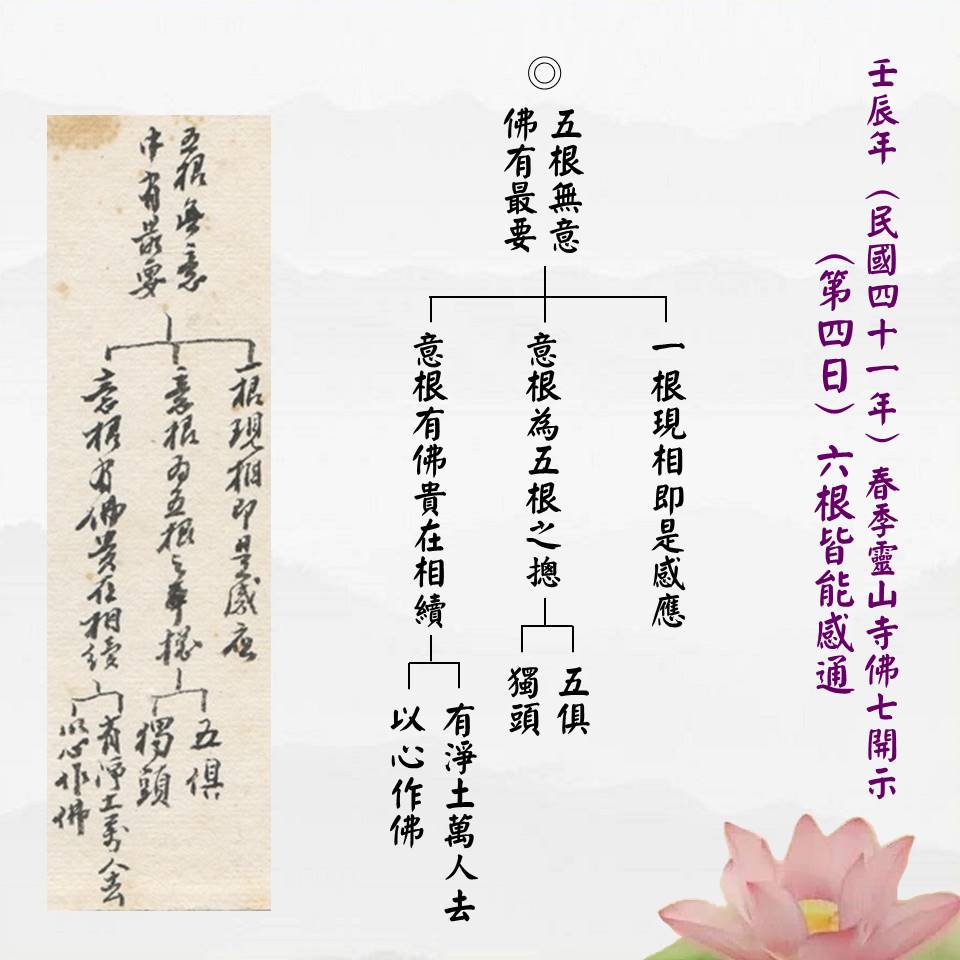 壬辰年（民國四十一年）春季靈山寺佛七開示
（第四日）六根皆能感通
◎
五根無意
佛有最要
一根現相即是感應
意根為五根之摠
五俱
獨頭
意根有佛貴在相續
有淨土萬人去
以心作佛
五根無意
有最要
一根現相即是感應
意根為五根之摠
五俱
獨頭
意根有佛貴在相續
有淨土萬人去
以心作佛